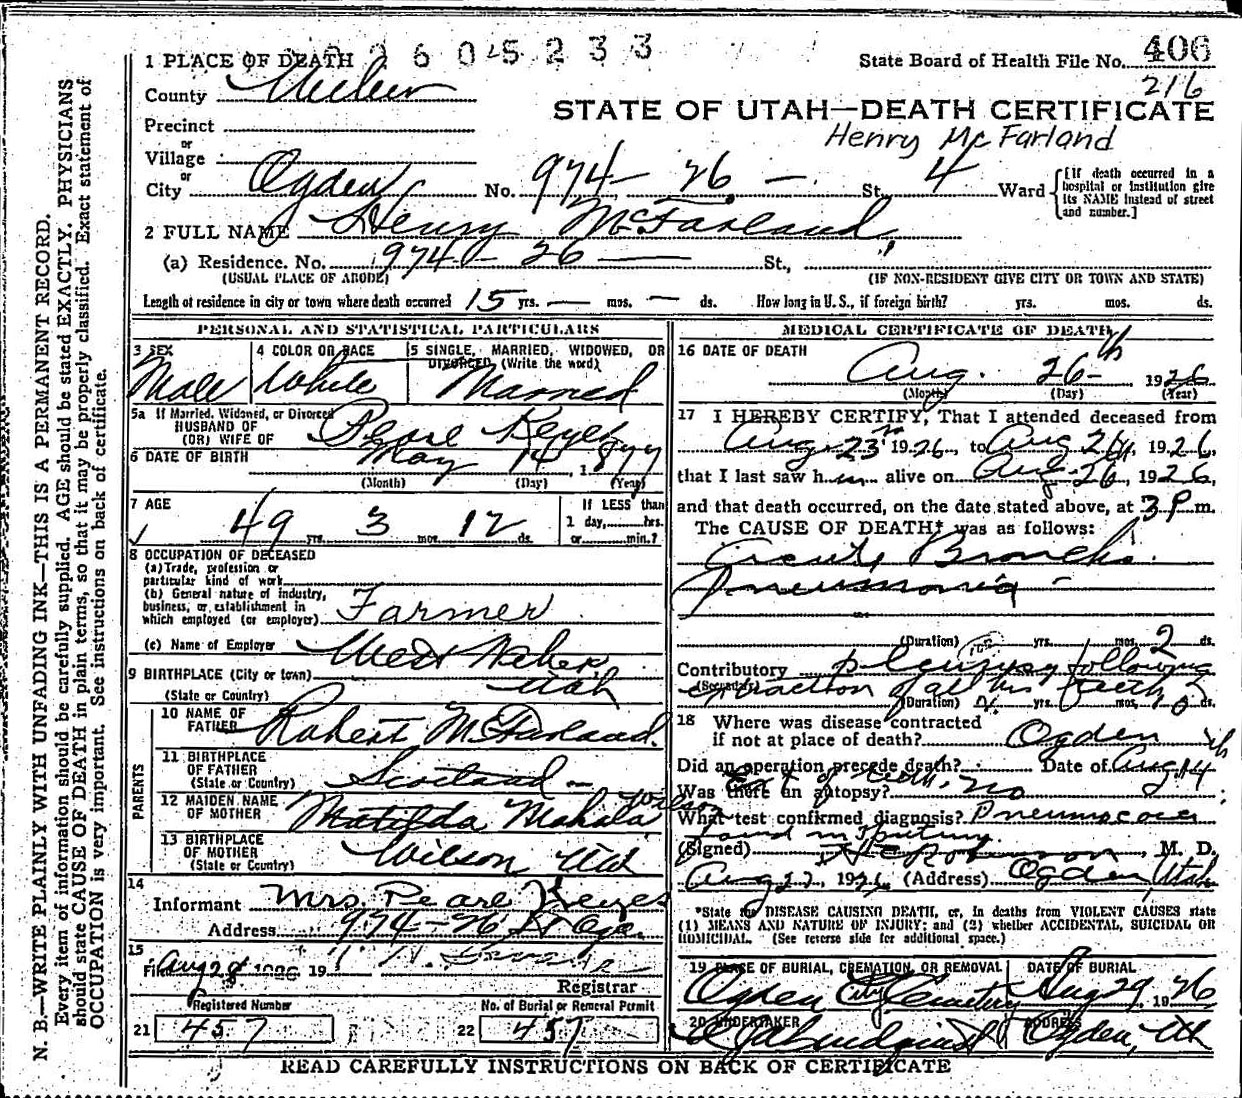 2605233
1 PLACE OF DEATH
State Board of Health File No. 406
216
County Weber
STATE OF UTAH—DEATH CERTIFICATE
Henry McFarland
Precinct
or
Village
or
City Ogden No. 974- 26 - St. 4 Ward
[If death occurred in a hospital or institution give its NAME instead of street and number.]
2 FULL NAME Henry McFarland
(a) Residence. No. 974- 26 St.,
(USUAL PLACE OF ABODE) (IF NON-RESIDENT GIVE CITY OR TOWN AND STATE)
Length of residence in city or town where death occurred 15 yrs. — mos. — ds. How long in U.S., if foreign birth? yrs. mos. ds.
PERSONAL AND STATISTICAL PARTICULARS
3 SEX
Male
4 COLOR OR RACE
White
5 SINGLE, MARRIED, WIDOWED, OR
DIVORCED (Write the word)
Married
5a If Married, Widowed, or Divorced
HUSBAND OF
(OR) WIFE OF Pearl Keyes
6 DATE OF BIRTH May 14, 1877
(Month) (Day) (Year)
7 AGE
49 yrs. 3 mos. 12 ds.
If LESS than
1 day, hrs.
or min.?
8 OCCUPATION OF DECEASED
(a) Trade, profession or
particular kind of work
(b) General nature of industry,
business, or establishment in
which employed (or employer) Farmer
(c) Name of Employer
9 BIRTHPLACE (City or town) West Weber
(State or Country) Utah
PARENTS
10 NAME OF
FATHER Robert McFarland
11 BIRTHPLACE
OF FATHER
(State or Country) Scotland -
12 MAIDEN NAME
OF MOTHER Matilda Mahala Wilson
13 BIRTHPLACE
OF MOTHER
(State or Country) Wilson Utah
14
Informant Mrs. Pearl Keyes
Address 974-26 St Ogd.
15
Filed Aug 28 1926 19
Registrar
Registered Number
21 457
No. of Burial or Removal Permit
22 457
MEDICAL CERTIFICATE OF DEATH
16 DATE OF DEATH
Aug. 26th 1926
(Month) (Day) (Year)
17 I HEREBY CERTIFY, That I attended deceased from
Aug 23 1926, to Aug 26, 1926,
that I last saw him alive on Aug. 26, 1926,
and that death occurred, on the date stated above, at 3 P m.
The CAUSE OF DEATH* was as follows:
acute Broncho
pneumonia -
(Duration) yrs. mos. 2 ds.
Contributory pleurisy following
(Secondary) extraction of all his teeth
(Duration) yrs. mos. 10 ds.
18 Where was disease contracted
if not at place of death? Ogden
Did an operation precede death? Date of Aug 14th
Ext of teeth.
Was there an autopsy? no
What test confirmed diagnosis? Pneumococci
found in Sputum
(Signed) Robinson, M. D.
Aug 27, 1926 (Address) Ogden, Utah
*State the DISEASE CAUSING DEATH, or, in deaths from VIOLENT CAUSES state
(1) MEANS AND NATURE OF INJURY; and (2) whether ACCIDENTAL, SUICIDAL OR
HOMICIDAL. (See reverse side for additional space.)
19 PLACE OF BURIAL, CREMATION, OR REMOVAL
Ogden City Cemetery
DATE OF BURIAL
Aug 29 1926
20 UNDERTAKER
Lindquist
ADDRESS
Ogden, Utah
READ CAREFULLY INSTRUCTIONS ON BACK OF CERTIFICATE
N. B.—WRITE PLAINLY WITH UNFADING INK—THIS IS A PERMANENT RECORD.
Every item of information should be carefully supplied. AGE should be stated EXACTLY. PHYSICIANS
should state CAUSE OF DEATH in plain terms, so that it may be properly classified. Exact statement of
OCCUPATION is very important. See instructions on back of certificate.